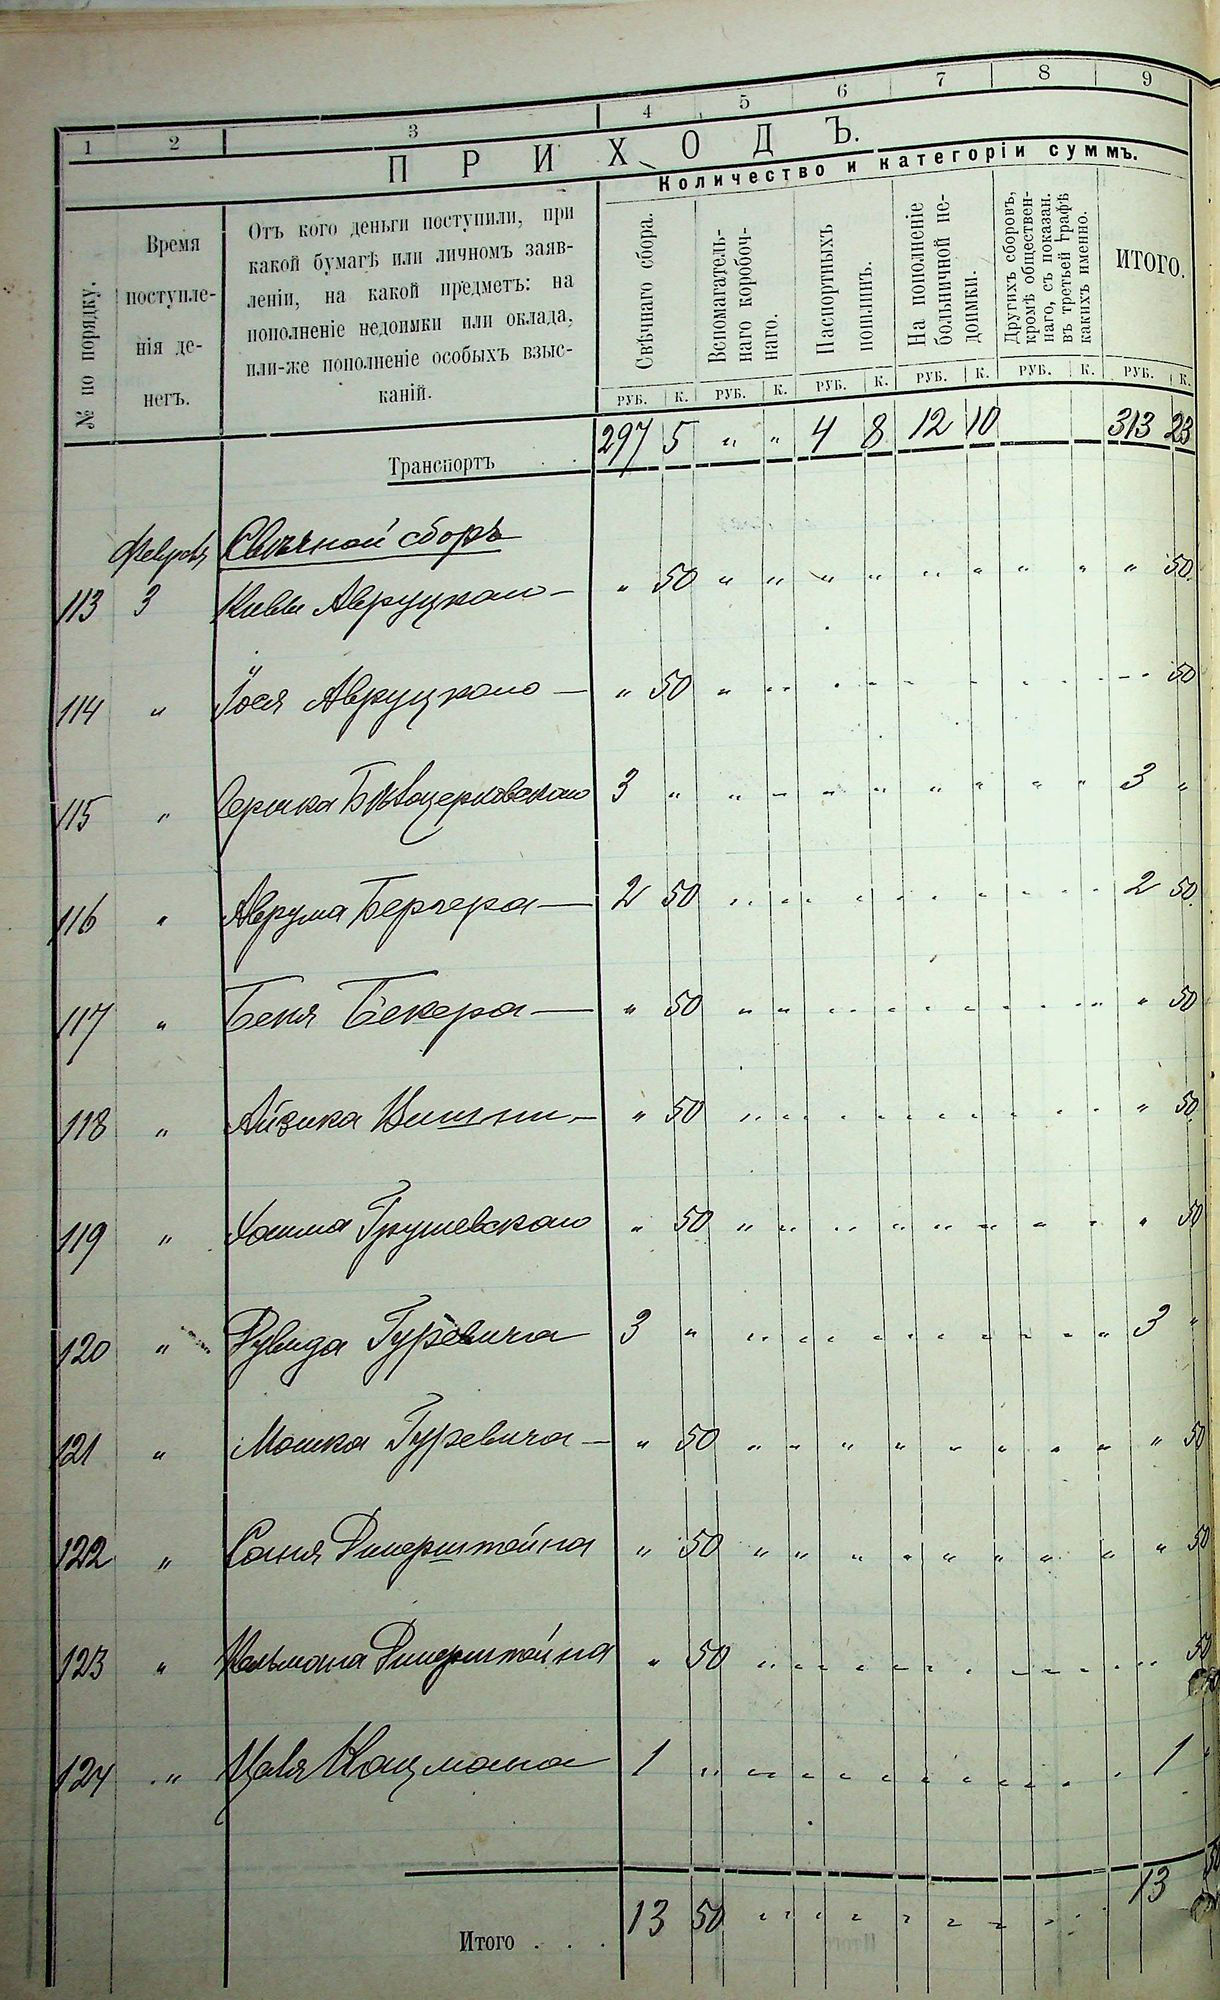 1 2 3 4 5 6 7 8 9
ПРИХОДЪ.
Количество и категоріи суммъ.
№ по порядку.
Время
поступле-
нія де-
негъ.
Отъ кого деньги поступили, при
какой бумагѣ или личномъ заяв-
леніи, на какой предметъ: на
пополненіе недоимки или оклада,
или-же пополненіе особыхъ взыс-
каній.
Свѣчнаго сбора.
Вспомагатель-
наго коробоч-
наго.
Паспортныхъ
пошлинъ.
На пополненіе
больничной не-
доимки.
Другихъ сборовъ,
кромѣ обществен-
наго, съ показан.
въ третьей графѣ
какихъ именно.
ИТОГО.
РУБ. К. РУБ. К. РУБ. К. РУБ. К. РУБ. К. РУБ. К.
Транспортъ . . 297 5 „ „ 4 8 12 10 313 23
Февраля Свѣчной сборъ
113 3 Кивы Авруцкаго — „ 50 „ „ „ „ „ „ „ „ „ 50
114 „ Іося Авруцкаго — „ 50 „ „ „ „ „ „ „ „ „ 50
115 „ Гершка Бѣлоцерковскаго 3 „ „ „ „ „ „ „ „ „ 3 „
116 „ Аврума Бергера — 2 50 „ „ „ „ „ „ „ „ 2 50
117 „ Беня Бекера — „ 50 „ „ „ „ „ „ „ „ „ 50
118 „ Айзика Вишни — „ 50 „ „ „ „ „ „ „ „ „ 50
119 „ Хаима Грушевскаго „ 50 „ „ „ „ „ „ „ „ „ 50
120 „ Дувида Гуревича 3 „ „ „ „ „ „ „ „ „ 3 „
121 „ Мошка Гуревича — „ 50 „ „ „ „ „ „ „ „ „ 50
122 „ Саня „ 50 „ „ „ „ „ „ „ „ „ 50
123 „ Кельмана „ 50 „ „ „ „ „ „ „ „ „ 50
124 „ Кацмана 1 „ „ „ „ „ „ „ „ „ 1 „
Итого . . . 13 50 „ „ „ „ „ „ „ „ 13 50